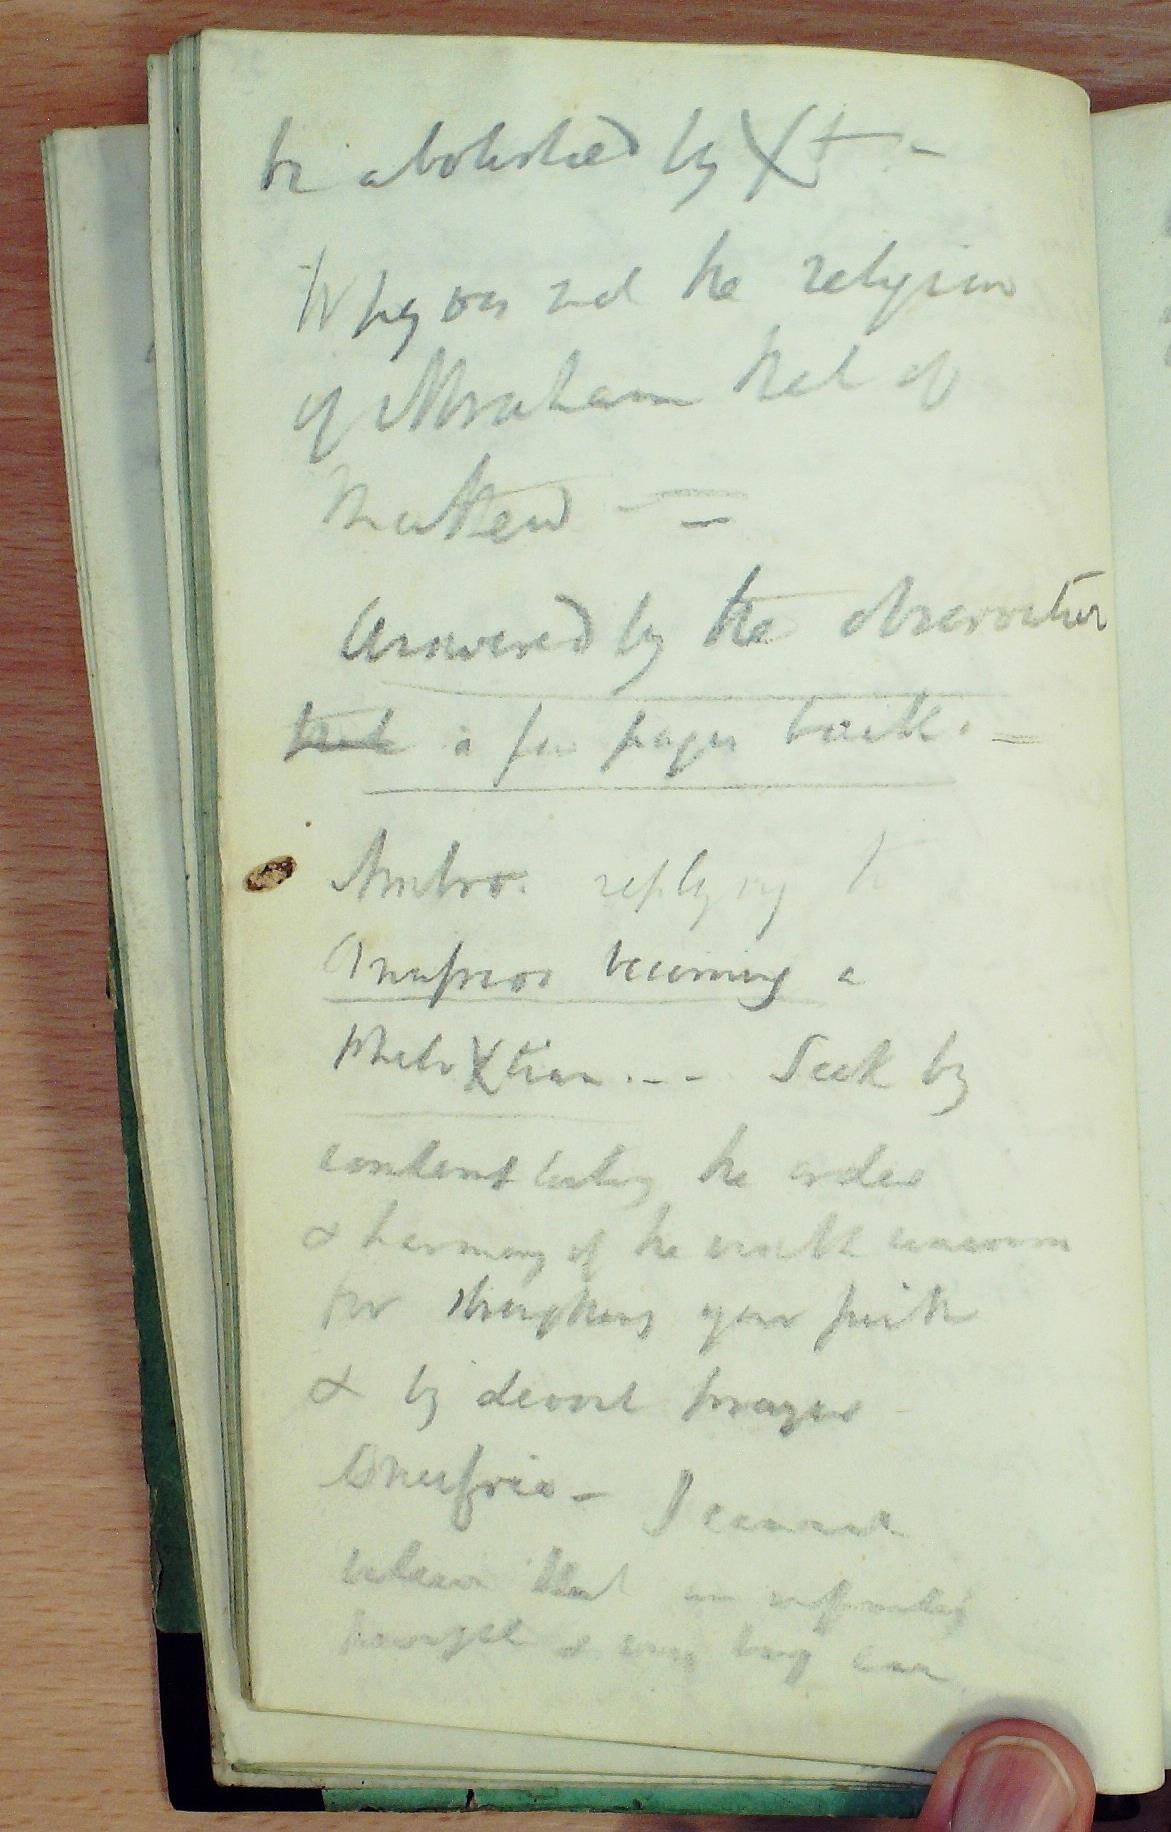 be abolished by Xt -
Why was not the religion
of Abraham that of
Matthew - =
Answered by the observation
that a few pages back. =
Ambro. replying to
Onufrios becoming a
philo Xtian. -- Seek by
contemplating the order
& harmony of the visible universe
for strengthening your faith
& by devout prayer
Onufrio - I cannot
believe that an
& every